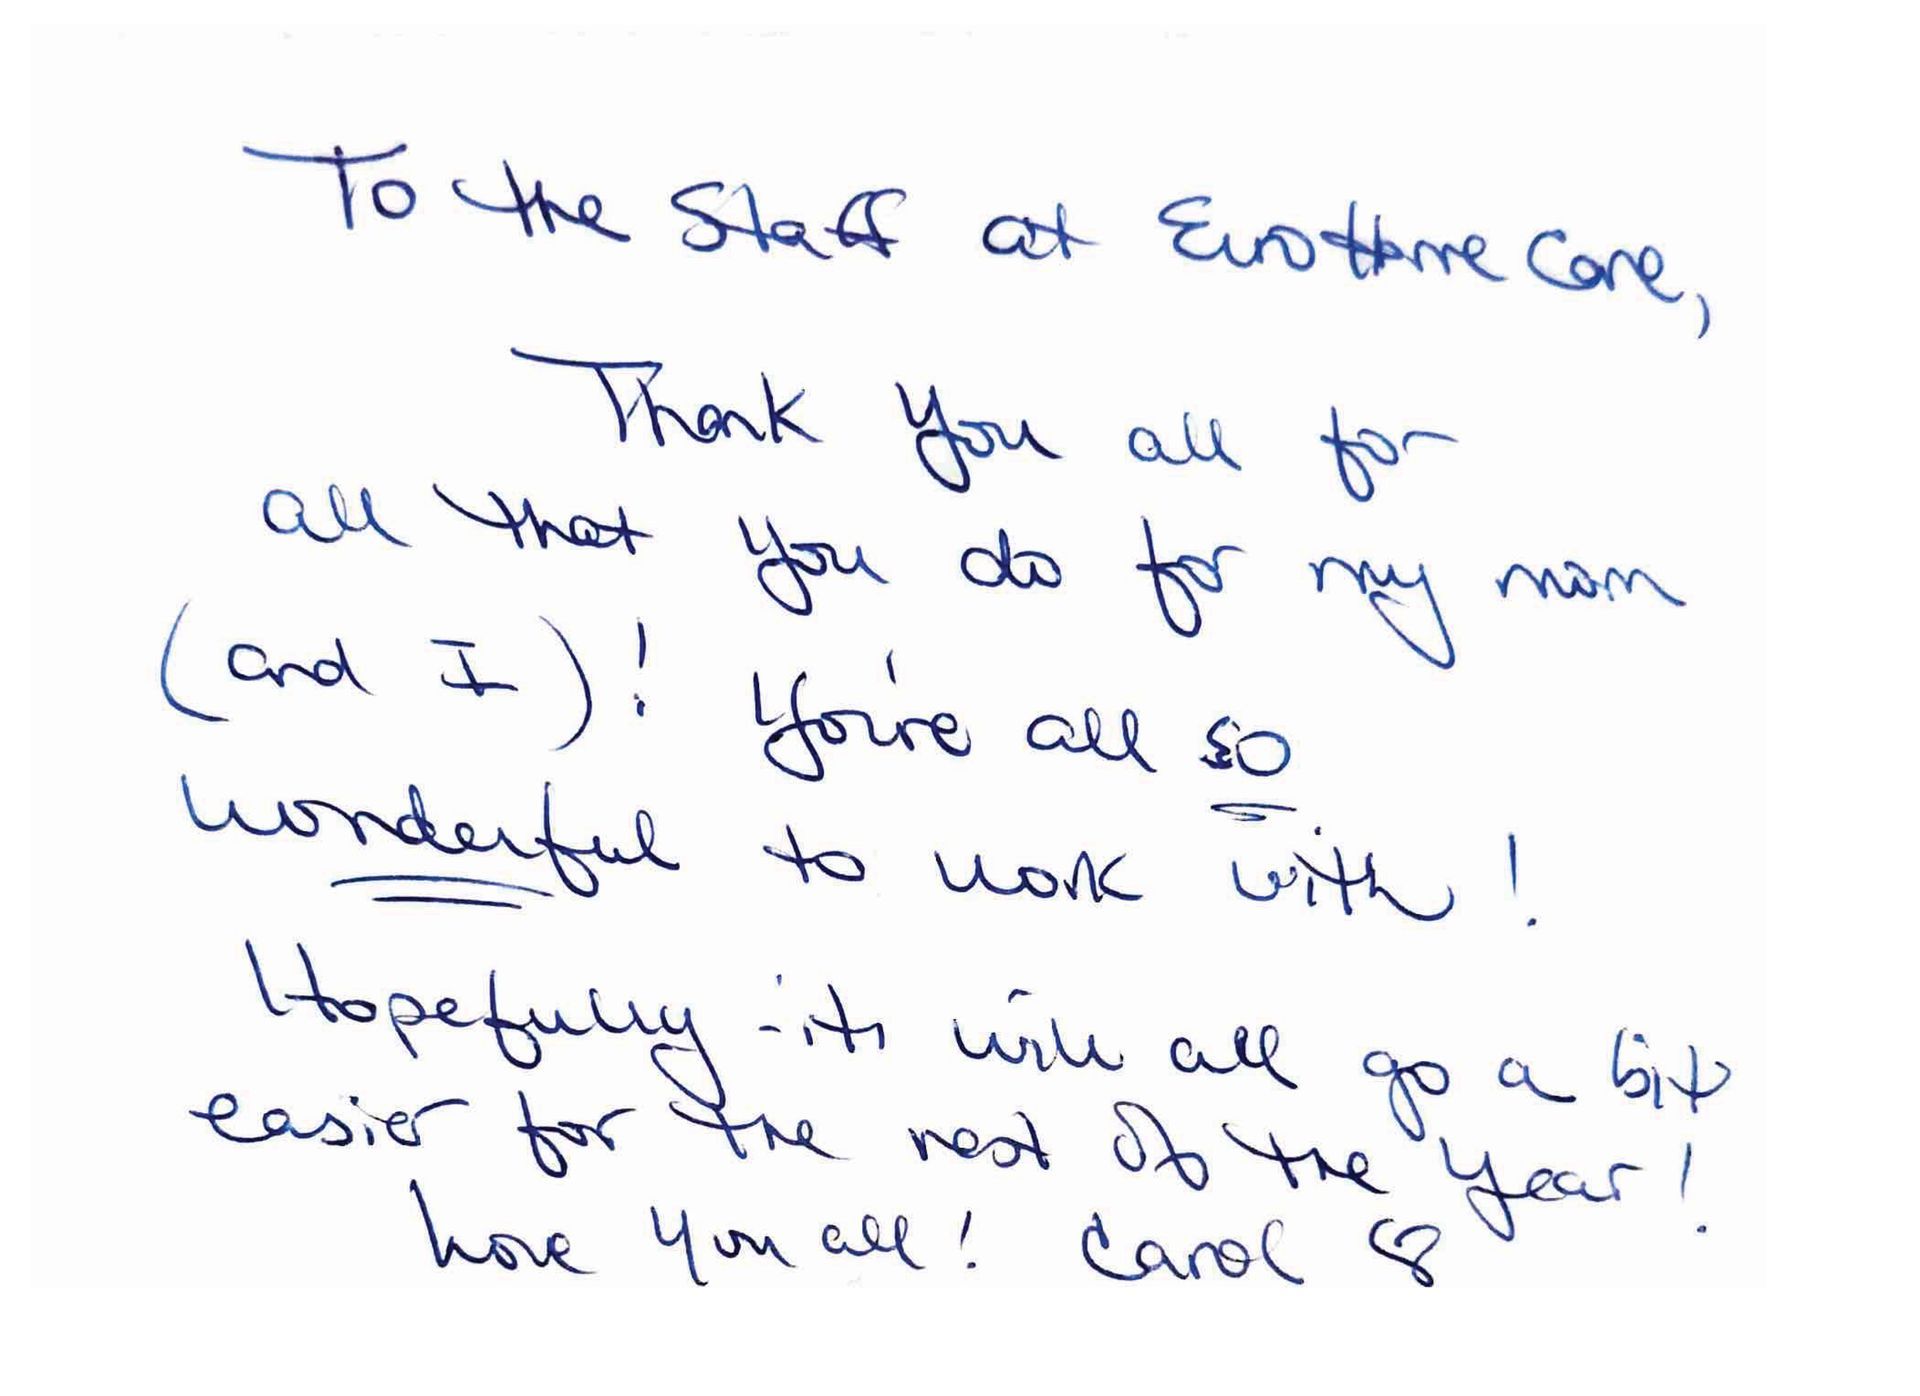 To the Staff at Euro Home Care,
Thank you all for
all that you do for my mom
(and I)! You're all so
wonderful to work with!
Hopefully - it will all go a bit
easier for the rest of the year!
Love you all! Carol ♡